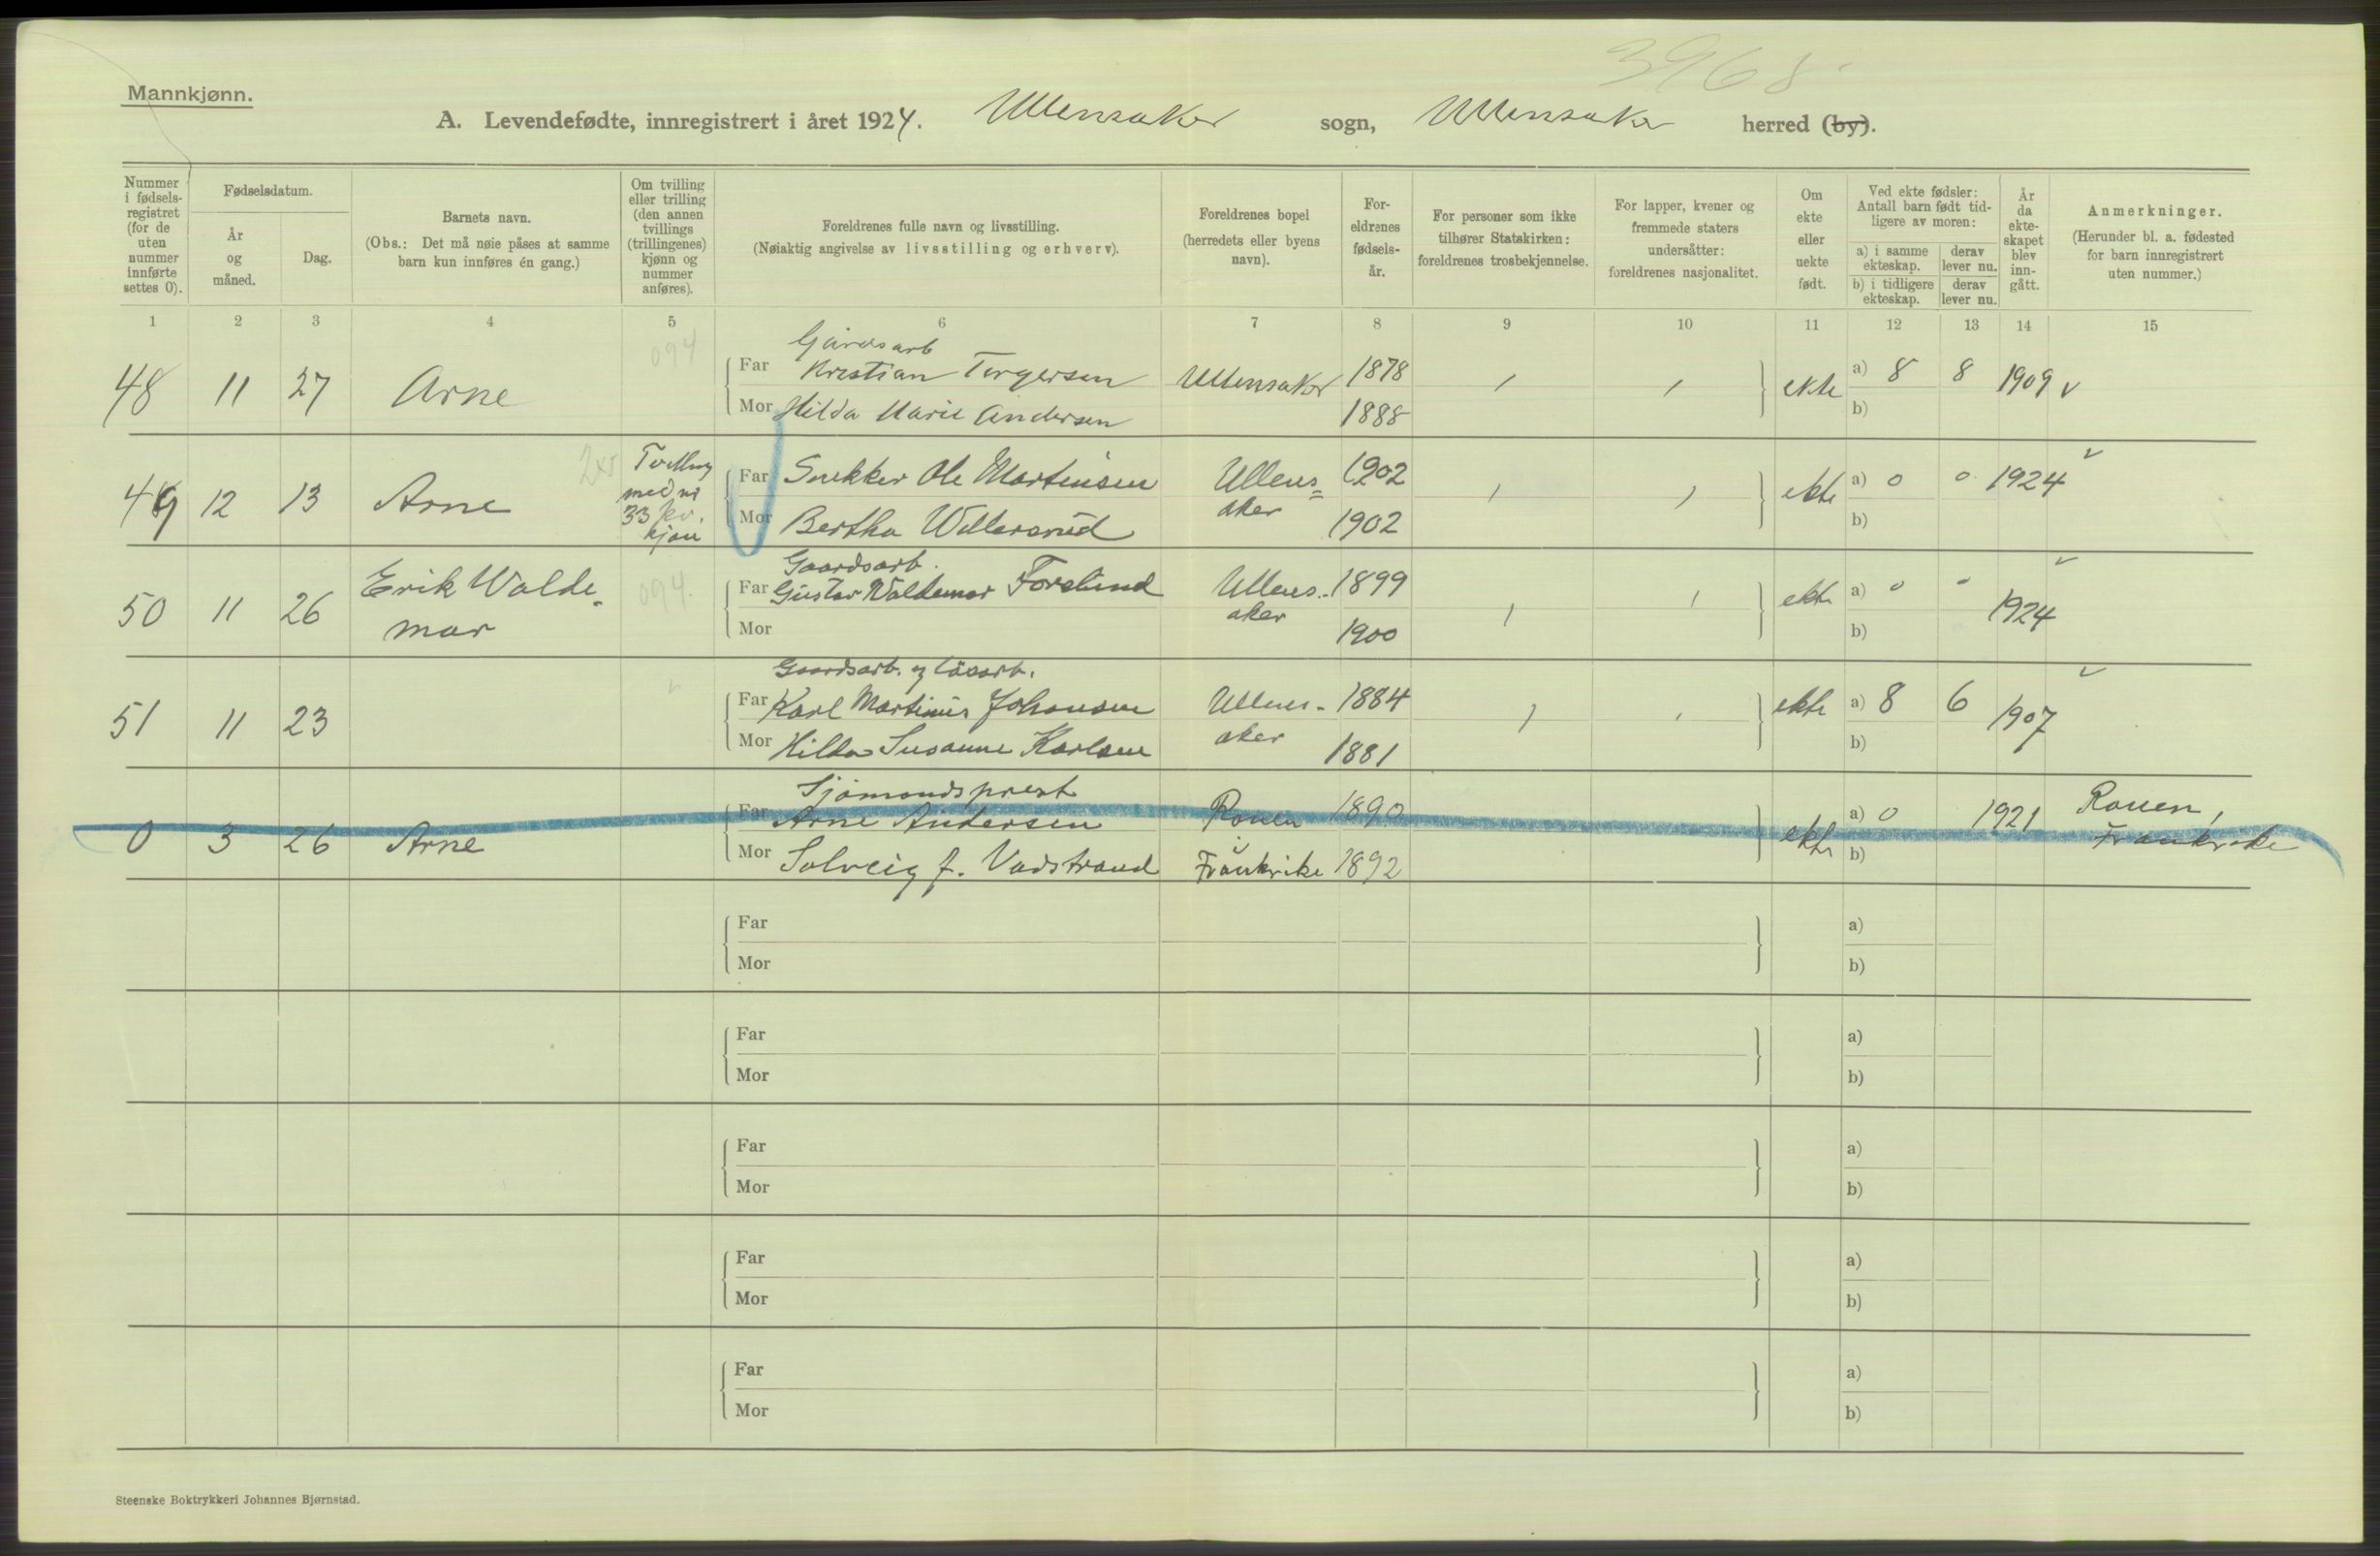 3968
Mannkjønn.
A. Levendefødte, innregistrert i året 1924. Ullensaker sogn, Ullensaker herred (by).
Nummer i fødsels-registret (for de uten nummer innførte settes 0).
Fødselsdatum.
År og måned.
Dag.
Barnets navn.
(Obs.: Det må nøie påses at samme barn kun innføres én gang.)
Om tvilling eller trilling (den annen tvillings (trillingenes) kjønn og nummer anføres).
Foreldrenes fulle navn og livsstilling.
(Nøiaktig angivelse av livsstilling og erhverv).
Foreldrenes bopel (herredets eller byens navn).
For-eldrenes fødsels-år.
For personer som ikke tilhører Statskirken: foreldrenes trosbekjennelse.
For lapper, kvener og fremmede staters undersåtter: foreldrenes nasjonalitet.
Om ekte eller uekte født.
Ved ekte fødsler: Antall barn født tid-ligere av moren:
a) i samme ekteskap.
derav lever nu.
b) i tidligere ekteskap.
derav lever nu.
År da ekte-skapet blev inn-gått.
Anmerkninger.
(Herunder bl. a. fødested for barn innregistrert uten nummer.)
1 2 3 4 5 6 7 8 9 10 11 12 13 14 15
094
Gårdsarb
48 11 27 Arne Far Kristian Torgersen Ullensaker 1878 ekte a) 8 8 1909 v
Mor Hilda Marie Andersen 1888 b)
2xs Tvilling med nr 33 kv. kjøn
49 12 13 Arne Far Snekker Ole Martinsen Ullens= aker 1902 ekte a) 0 0 1924
Mor Bertha Willersrud 1902 b)
Gaardsarb.
50 11 26 Erik Walde- mar 094. Far Gustav Waldemar Forslund Ullens.- aker 1899 ekte a) 0 0 1924
Mor 1900 b)
Gaardsarb. og løsarb.
51 11 23 Far Karl Martinius Johansen Ullens- aker 1884 ekte a) 8 6 1907
Mor Hilda Susanne Karlsen 1881 b)
Sjømandsprest
0 3 26 Arne Far Arne Andersen Rouen 1890 ekte a) 0 1921 Rouen, Frankrike
Mor Solveig f. Vadstrand Frankrike 1892 b)
Far a)
Mor b)
Far a)
Mor b)
Far a)
Mor b)
Far a)
Mor b)
Far a)
Mor b)
Steenske Boktrykkeri Johannes Bjørnstad.